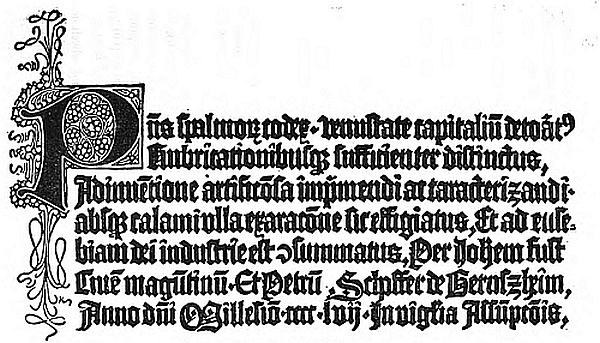 Pñs spalmoꝝ codex · venustate capitaliũ decoratꝰ
Rubricationibusqꝫ sufficienter distinctus,
Adinuẽtione artificiosa imp̃mendi ac caracterizandi ·
absqꝫ calami vlla exaracõne sic effigiatus, Et ad euse-
biam dei industrie est ↄsummatus, Per Johẽm fust
Ciuẽ magũtinũ · Et Petrũ Schoffer de Gernszheim,
Anno dñi Millesiõ · cccc · lvij · In vigĩlia Assũpcõis,